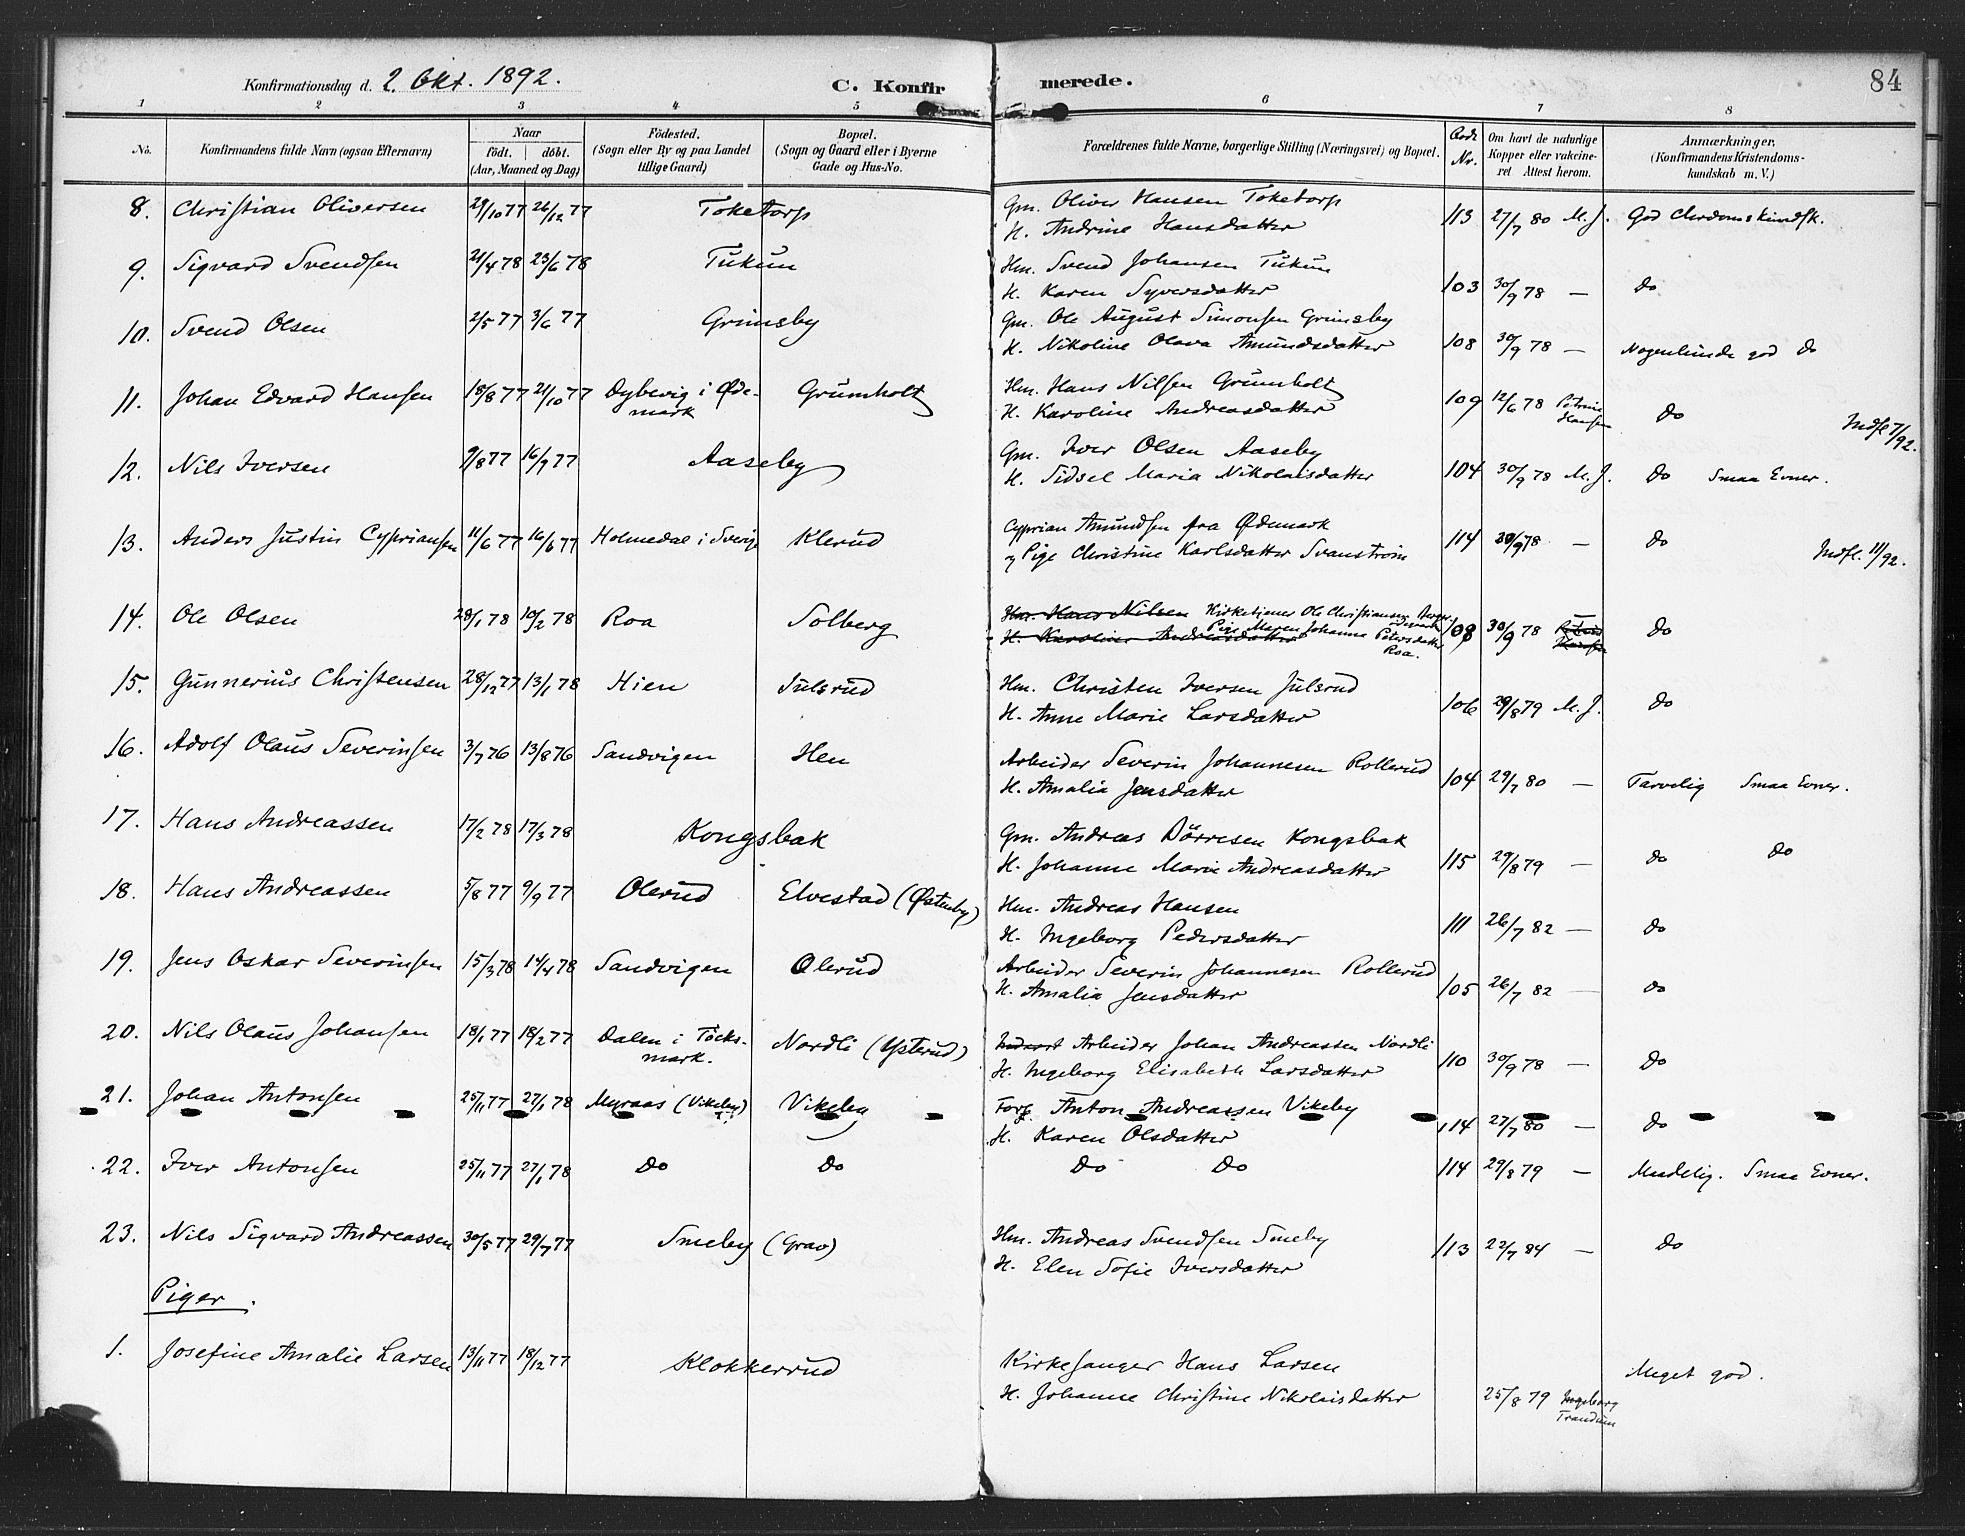 Konfirmationsdag d. 2. Okt. 1892. C. Konfirmerede. 84
1 2 3 4 5 6 7 8
No. Konfirmandens fulde Navn (ogsaa Efternavn) Naar født. døbt. (Aar, Maaned og Dag) Fødested. (Sogn eller By og paa Landet tillige Gaard) Bopæl. (Sogn og Gaard eller i Byerne Gade og Hus-No. Forældrenes fulde Navne, borgerlige Stilling (Næringsvei) og Bopæl. Nr. Om havt de naturlige Kopper eller vakcineret Attest herom. Anmærkninger. (Konfirmandens Kristendomskundskab m. V.)
8. Christian Oliversen 29/10 77 26/12 77 Toketorp Gm. Oliver Hansen Toketorp 113 27/7 80 M. J. God Chrdomskundsk.
H. Andrine Hansdatter
9. Sigvard Svendsen 21/4 78 23/6 78 Tukun Hm. Svend Johansen Tukun
H. Karen Syversdatter 103 30/9 78 — Do
10. Svend Olsen 2/5 77 3/6 77 Grimsby Gm. Ole August Simonsen Grimsby
H. Nikoline Olava Amundsdatter 108 30/9 78 — Nogenlunde god Do
11. Johan Edvard Hansen 18/8 77 21/10 77 Dybevig i Ødemark Grumholt Hm. Hans Nilsen Grumholt
H. Karoline Andreasdatter 109 12/6 78 Petrine Hansen Do Indfl 7/92.
12. Nils Iversen 9/8 77 16/9 77 Aaseby Gm. Iver Olsen Aaseby
H. Sidsel Maria Nikolaisdatter 104 30/9 78 M. J. Do Smaa Evner.
13. Anders Justin Cypriansen 11/6 77 16/6 77 Holmedal i Sverige Klerud Cyprian Amundsen fra Ødemark
og Pige Christine Karlsdatter Svanstrøm 114 30/9 78 — Do Indfl. 11/92.
14. Ole Olsen 28/1 78 10/2 78 Roa Solberg Hm. Hans Nilsen Kirketjener Ole Christiansen
H. Karoline Andreasdatter Pige Maren Johanne Petersdatter Roa. 108 30/9 78 Do
15. Gunnerius Christensen 28/12 77 13/1 78 Hien Julsrud Hm. Christen Iversen Julsrud
H. Anne Marie Larsdatter 106 29/8 79 M. J. Do
16. Adolf Olaus Severinsen 3/7 76 13/8 76 Sandvigen Hen Arbeider Severin Johannesen Rollerud
H. Amalia Jensdatter 104 29/7 80 — Tarvelig Smaa Evner.
17. Hans Andreassen 17/2 78 17/3 78 Kongsbak Gm. Andreas Dörresen Kongsbak
H. Johanne Marie Andreasdatter 115 29/8 79 — Do Do
18. Hans Andreassen 5/8 77 9/9 77 Olerud Elvestad (Østenby) Hm. Andreas Hansen
H. Ingeborg Pedersdatter 111 26/7 82 — Do
19. Jens Oskar Severinsen 15/3 78 14/4 78 Sandvigen Olerud Arbeider Severin Johannesen Rollerud
H. Amalia Jensdatter 105 26/7 82 — Do
20. Nils Olaus Johansen 18/1 77 18/2 77 Dalen i Töcksmark. Nordli (Ysterud) Arbeider Johan Andreassen Nordli
H. Ingeborg Elisabeth Larsdatter 110 30/9 78 — Do
21. Johan Antonsen 25/11 77 27/1 78 Myraas (Vikeby) Vikeby Forp. Anton Andreassen Vikeby
H. Karen Olsdatter 114 27/7 80 — Do
22. Iver Antonsen 25/11 77 27/1 78 Do Do Do Do 114 29/8 79 — Maadelig. Smaa Evner.
23. Nils Sigvard Andreassen 30/5 77 29/7 77 Smeby (Grav) Hm. Andreas Svendsen Smeby 113 22/7 84 — Do
H. Elen Sofie Iversdatter
Piger.
1. Josefine Amalie Larsen 13/11 77 18/12 77 Klokkerrud Kirkesanger Hans Larsen Meget god.
H. Johanne Christine Nikolaisdatter 25/8 79 Ingeborg Trandum